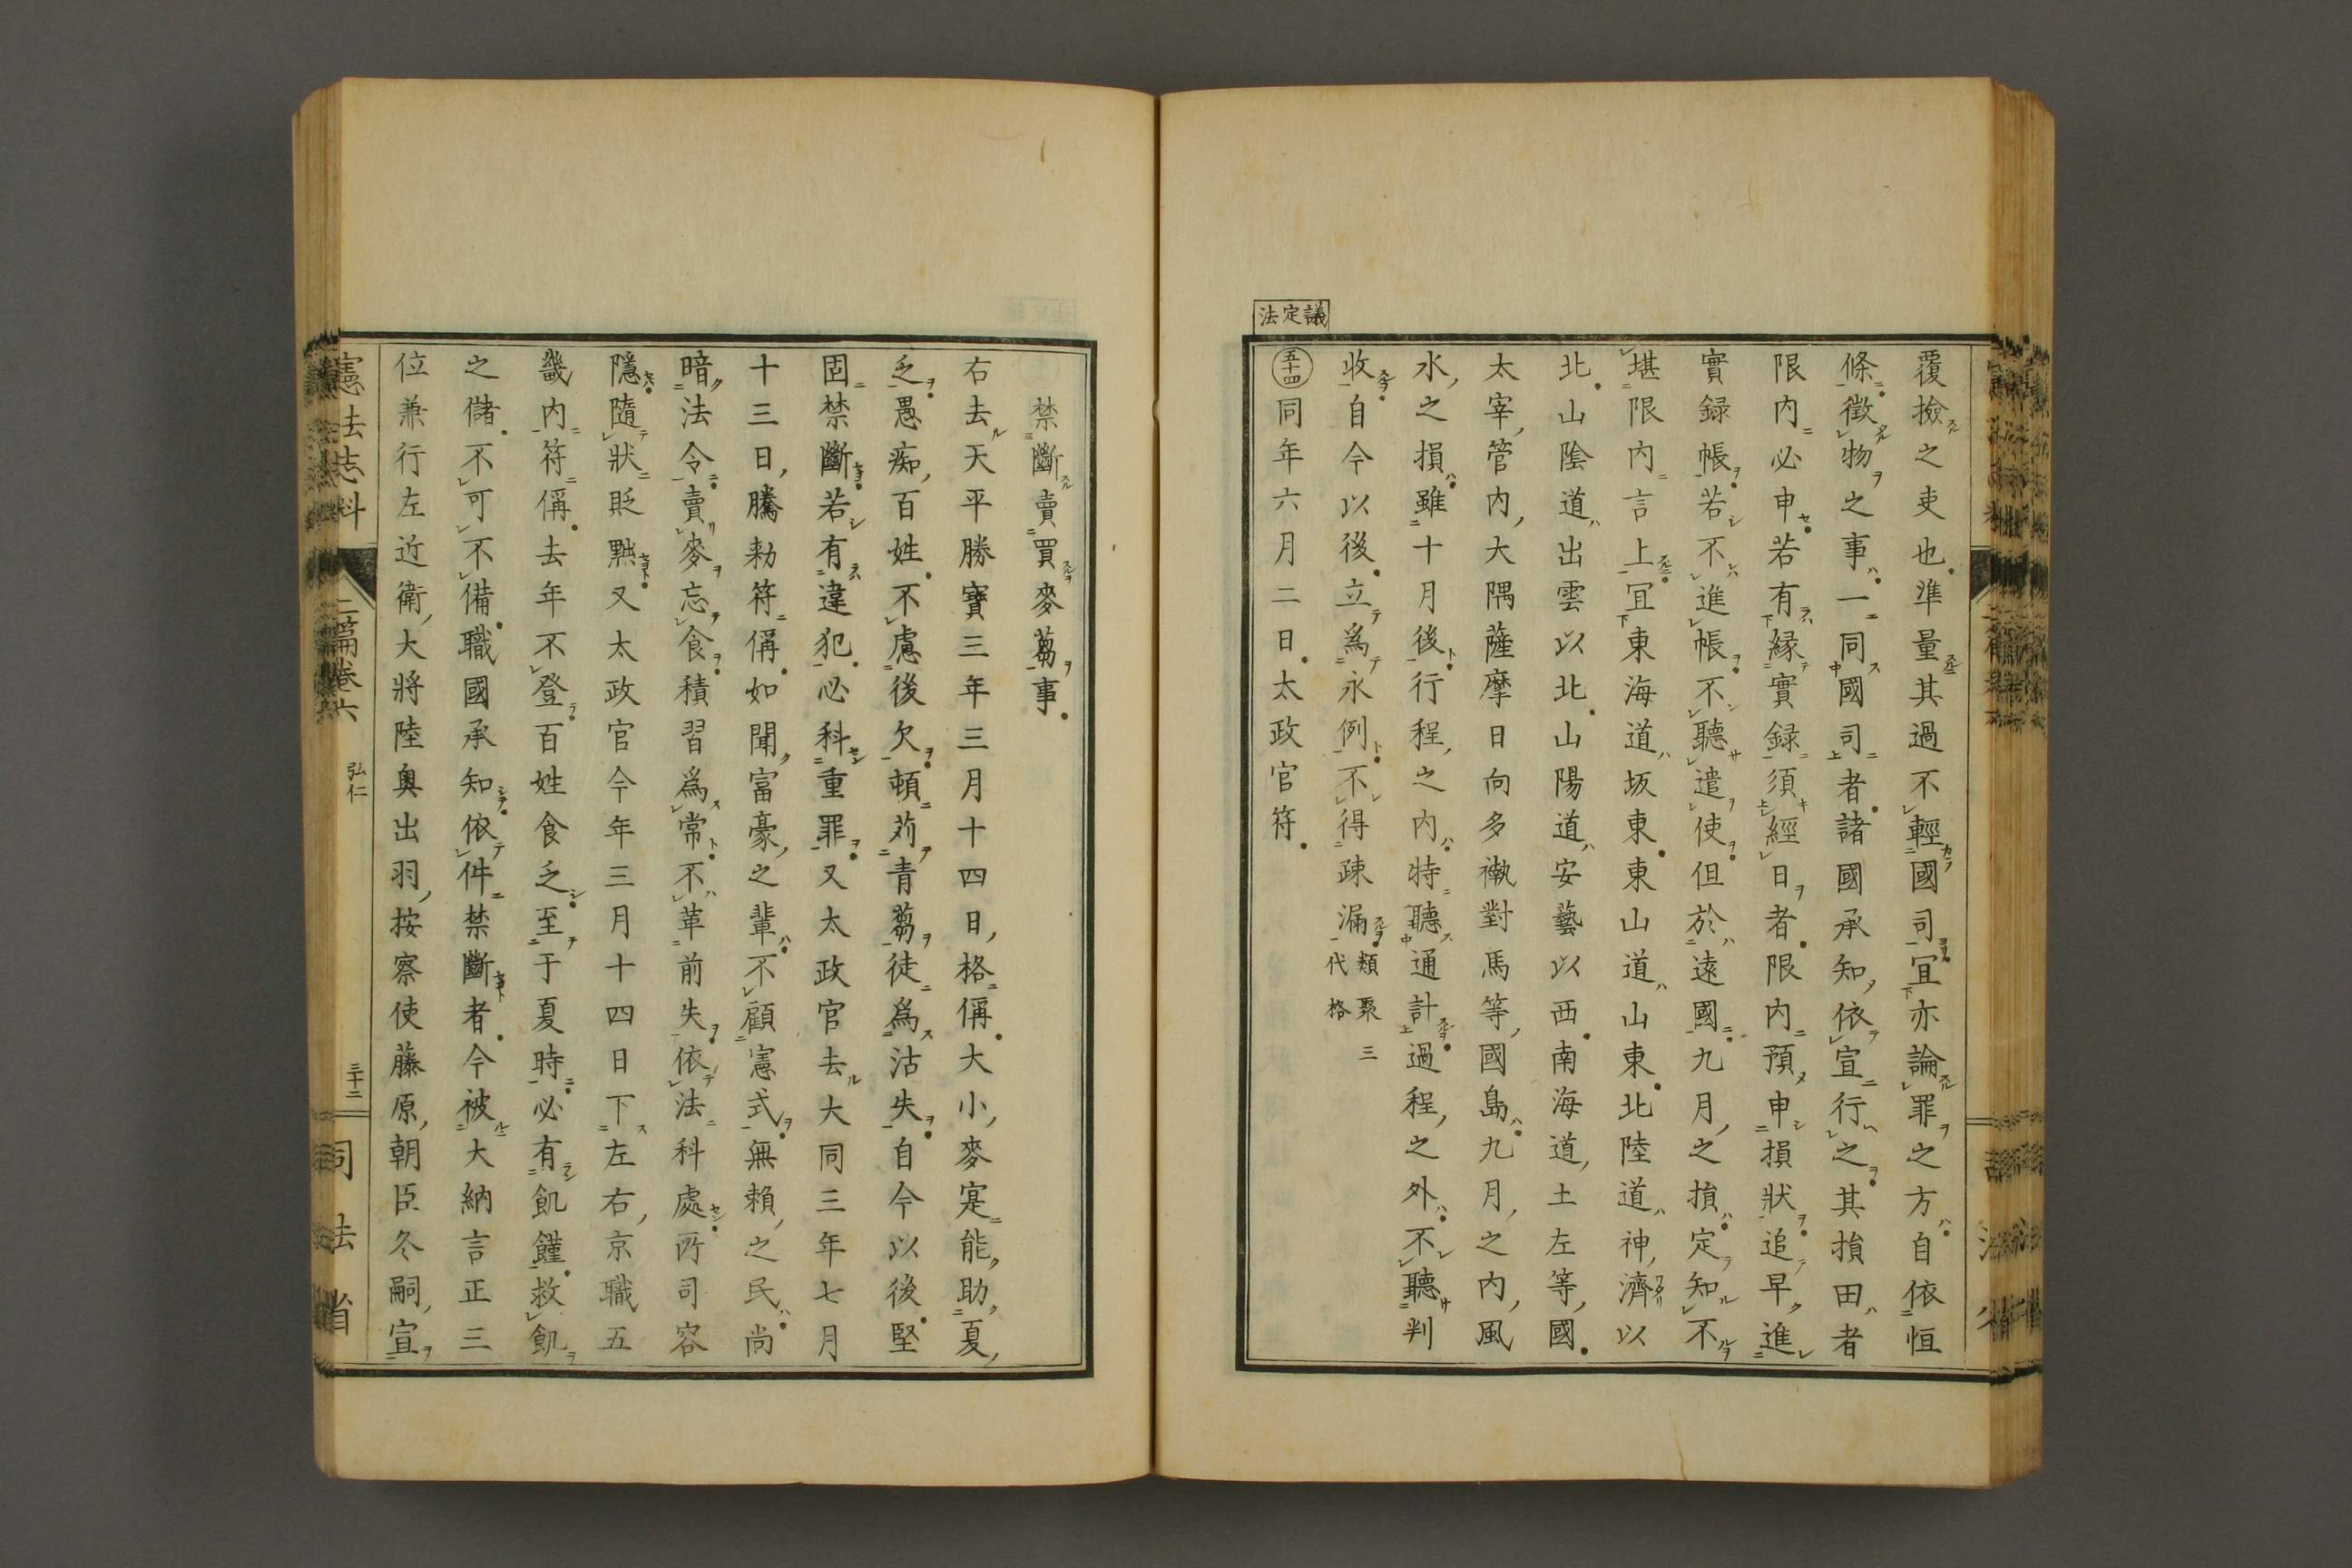 覆撿之吏也準量其過不輕國司宜亦論罪之方自依恒
條徵物之事一同國司者諸國承知依宣行之其損田者
限内必申若有緣實録須經日者限内預申損狀追早進
實録帳若不進帳不聽遣使但於遠國九月之損定知不
堪限内言上宜東海道坂東東山道山東北陸道神濟以
北山陰道出雲以北山陽道安藝以西南海道土左等國
太宰管内大隅薩摩日向多褹對馬等國島九月之内風
水之損雖十月後行程之内特聽通計過程之外不聽判
收自今以後立爲永例不得疎漏類聚三代格
議定法
五十四同年六月二日太政官符
禁斷賣買麥蒭事
右去天平勝寶三年三月十四日格偁大小麥寔能助夏
乏愚痴百姓不慮後欠頓苅青蒭徒爲沽失自今以後堅
固禁斷若有違犯必科重罪又太政官去大同三年七月
十三日騰勅符偁如聞富豪之輩不顧憲式無賴之民尚
暗法令賣麥忘食積習爲常不革前失依法科處所司容
隱隨狀貶黜又太政官今年三月十四日下左右京職五
畿内符偁去年不登百姓食乏至于夏時必有飢饉救飢
之儲不可不備職國承知依件禁斷者今被大納言正三
位兼行左近衛大將陸奥出羽按察使藤原朝臣冬嗣宣
憲法志料 二篇卷六 弘仁 三十二 司法省